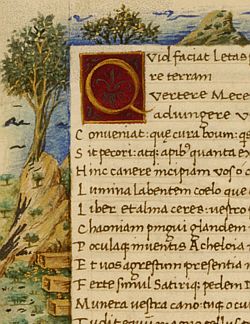 QVid faciat letas
re terram
Vertere Mece
Adiungere V
Conueniat: que cura boum: q
Sit pecori: atq; apibus quanta ex
Hinc canere incipiam vos o c
Lumina labentem coelo que
Liber et alma ceres: vestro
Chaoniam pingui glandem
Poculaq; inuentis Acheloia
Et vos agrestum presentia n
Ferte simul Satiriq; pedem D
Munera vestra cano: tuq; o cu